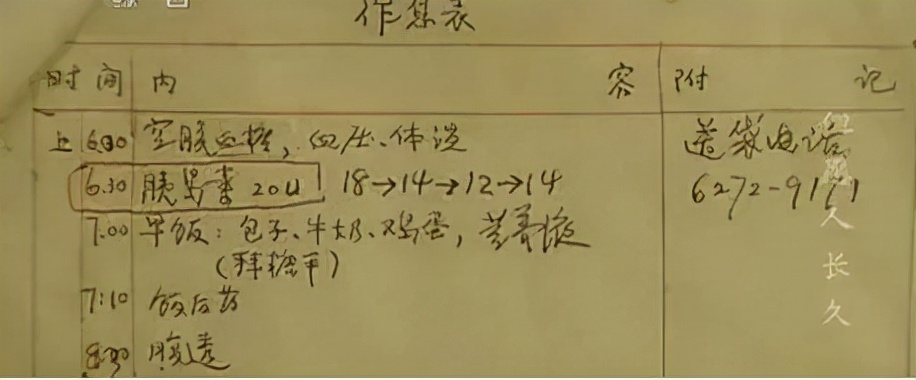 作息表
时间 内容 附记
上 6:00 空腹血糖,血压、体温 送袋电话
6.30 胰岛素 20U 18→14→12→14 6272-9171
7.00 早饭:包子、牛奶、鸡蛋,营养液
(拜糖平)
7:10 饭后药
8:30 腹透
人长久